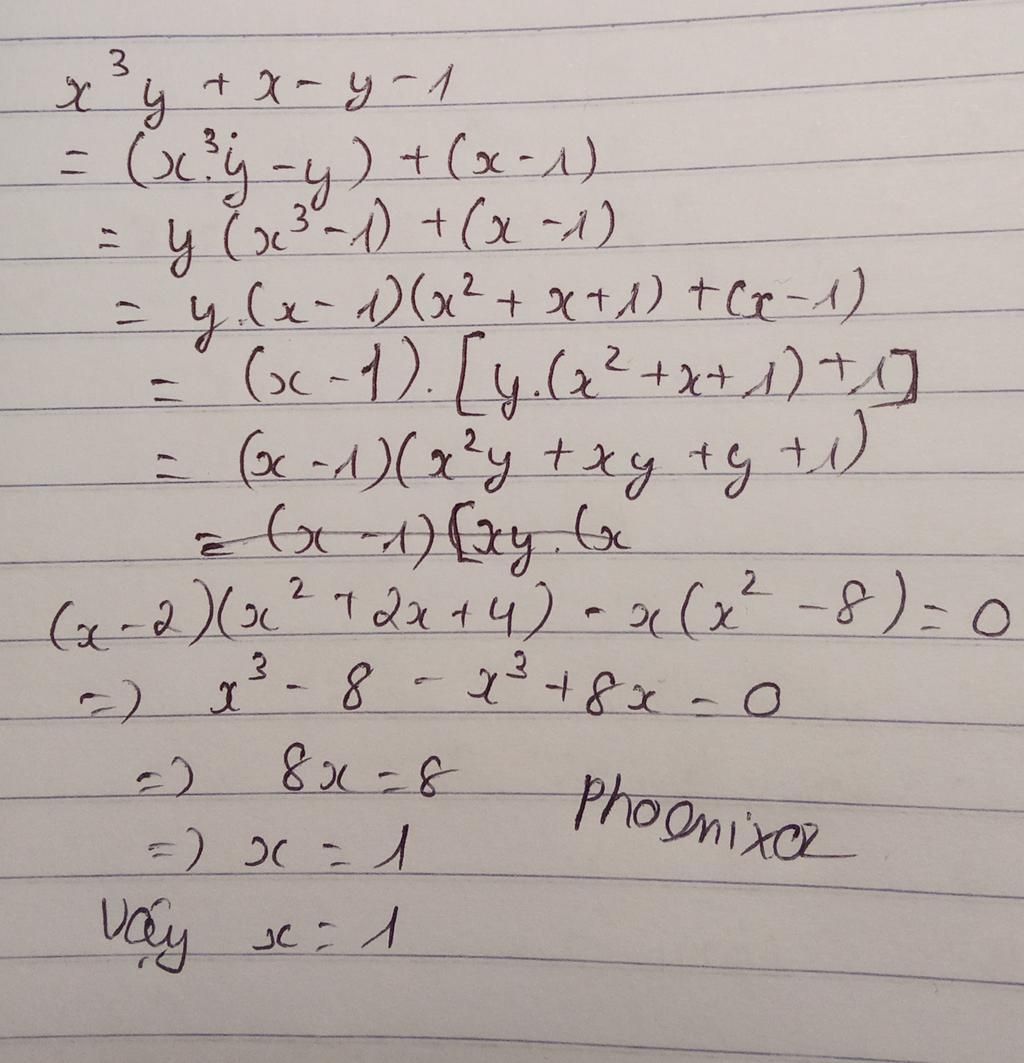 x³y + x - y - 1
= (x³.y - y) + (x - 1)
= y (x³ - 1) + (x - 1)
= y.(x - 1)(x² + x + 1) + (x - 1)
= (x - 1).[y.(x² + x + 1) + 1]
= (x - 1)(x²y + xy + y + 1)
= (x - 1)[xy.(x
(x - 2)(x² + 2x + 4) - x(x² - 8) = 0
=) x³ - 8 - x³ + 8x = 0
=) 8x = 8
=) x = 1
Vậy x = 1